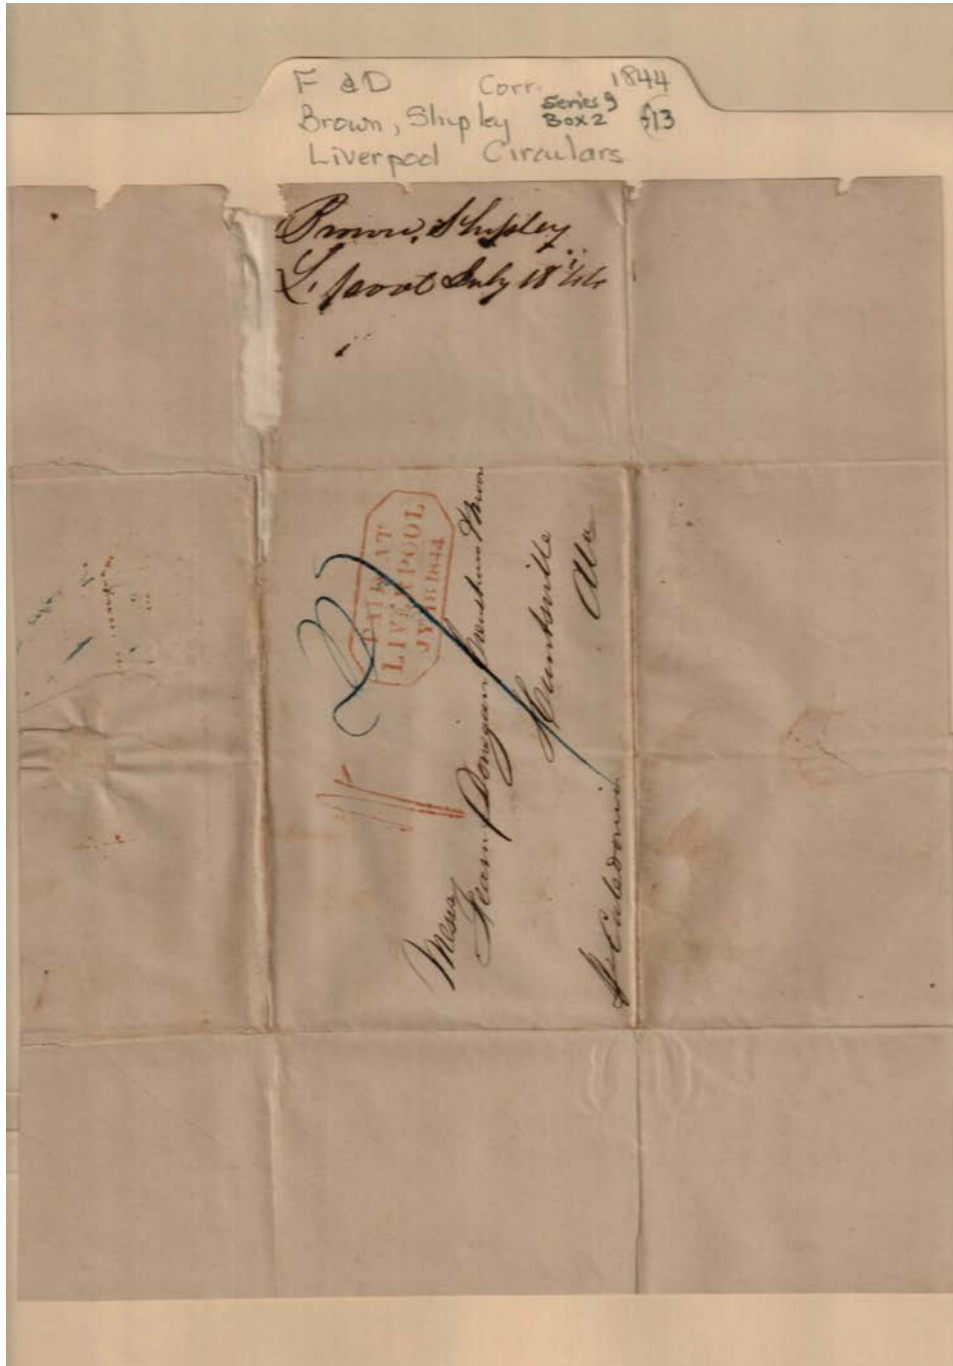 F & D Corr. 1844
Brown, Shipley Series 9 Box 2 f13
Liverpool Circulars
Brown, Shipley
L.pool July 18th 44
PAID AT
LIVERPOOL
JY 18 1844
Messrs
Fearn Donegan
Huntsville
Ala
Caledonia